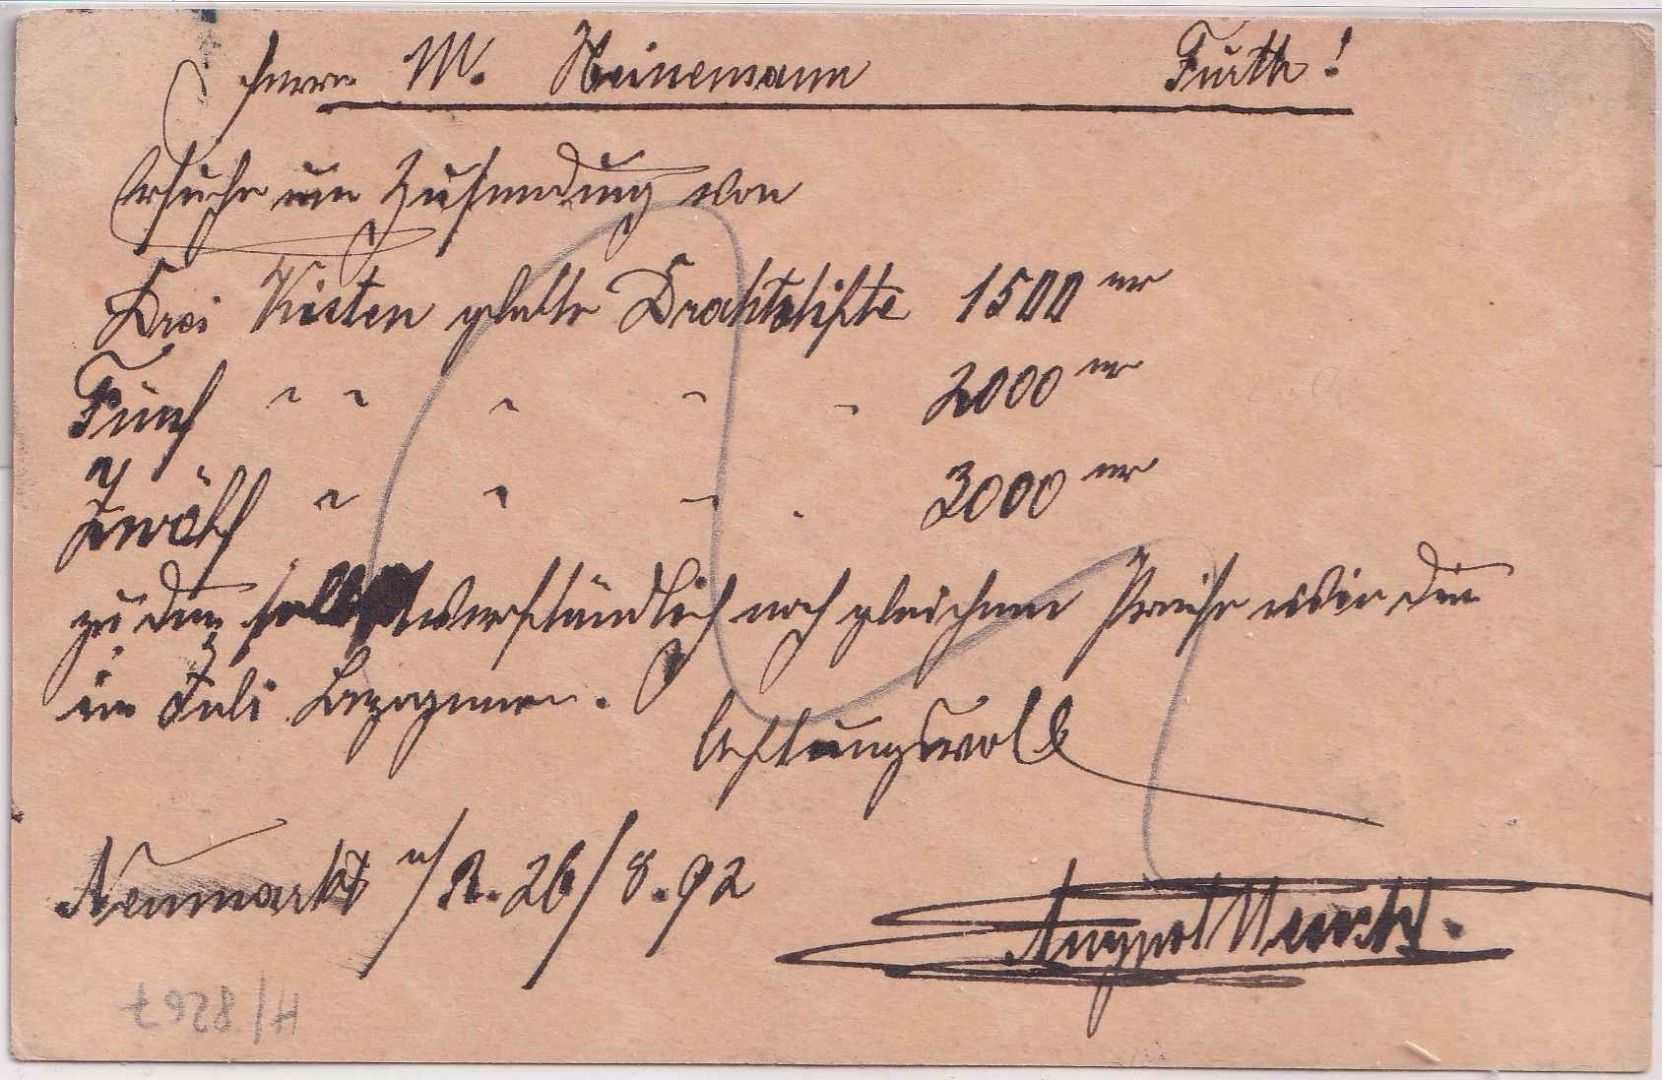 Herrn M. Heinemann Fürth!
Ersuche um Zusendung von
Drei Kisten glatte Drahtstifte 1500 nr
Fünf " " " " " 2000 nr
Zwölf " " " " 3000 nr
zu den selbstverständlich noch gleichen Preise wie den
im Juli bezogenen.
Achtungsvoll
Neumarkt a/R. 26/8.92
August
H/8267